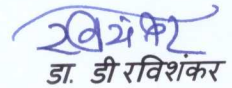 रविशंकर
डा. डी रविशंकर